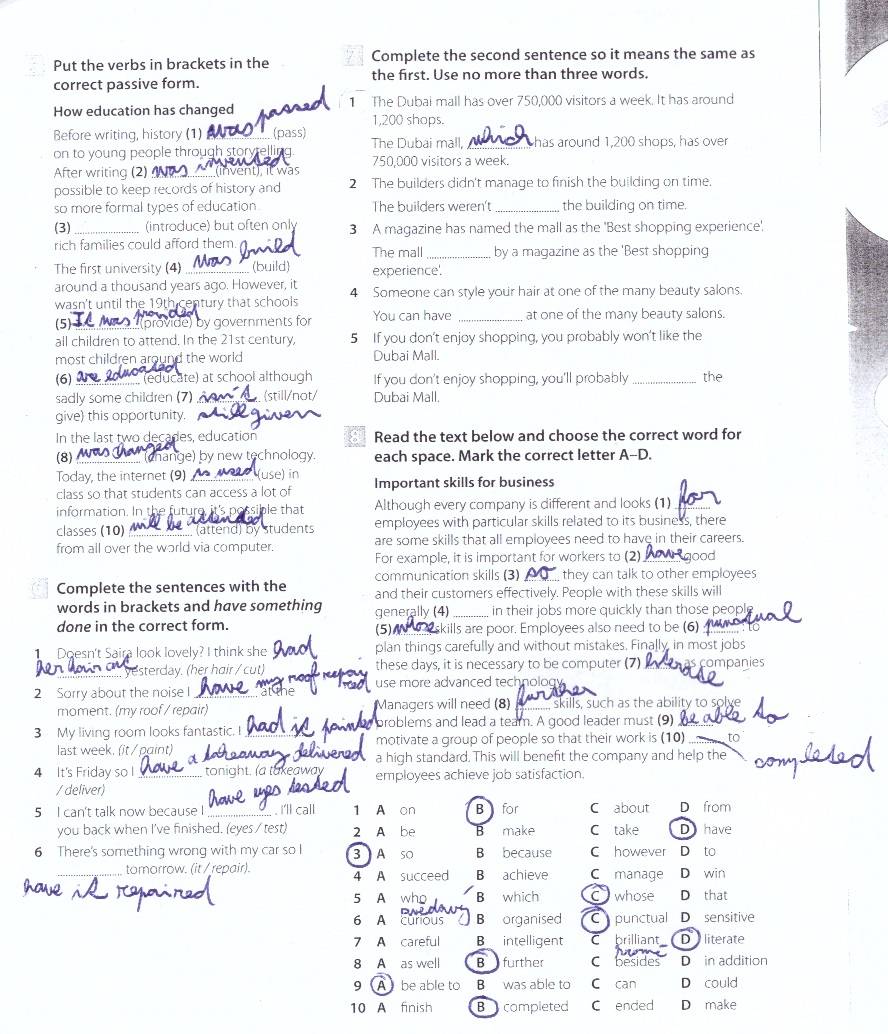 Put the verbs in brackets in the
correct passive form.
How education has changed
passed
Before writing, history (1) was (pass)
on to young people through storytelling.
After writing (2) was invented (invent), it was
possible to keep records of history and
so more formal types of education
(3) ______ (introduce) but often only
rich families could afford them.
The first university (4) was build (build)
around a thousand years ago. However, it
wasn't until the 19th century that schools
(5) It was provided (provide) by governments for
all children to attend. In the 21st century,
most children around the world
(6) are educated (educate) at school although
sadly some children (7) isn't (still/not/
give) this opportunity. still given
In the last two decades, education
(8) was changed (change) by new technology.
Today, the internet (9) is used (use) in
class so that students can access a lot of
information. In the future, it's possible that
classes (10) will be attended (attend) by students
from all over the world via computer.
6
Complete the sentences with the
words in brackets and have something
done in the correct form.
1 Doesn't Saira look lovely? I think she had
her hair cut yesterday. (her hair / cut)
2 Sorry about the noise I have my roof at the
moment. (my roof / repair)
3 My living room looks fantastic. I had it painted
last week. (it / paint)
4 It's Friday so I have a takeaway delivered tonight. (a takeaway
/ deliver)
5 I can't talk now because I have eyes tested. I'll call
you back when I've finished. (eyes / test)
6 There's something wrong with my car so I
______ tomorrow. (it / repair).
have it repaired
7
Complete the second sentence so it means the same as
the first. Use no more than three words.
1 The Dubai mall has over 750,000 visitors a week. It has around
1,200 shops.
The Dubai mall, which has around 1,200 shops, has over
750,000 visitors a week.
2 The builders didn't manage to finish the building on time.
The builders weren't ______ the building on time.
3 A magazine has named the mall as the 'Best shopping experience'.
The mall ______ by a magazine as the 'Best shopping
experience'.
4 Someone can style your hair at one of the many beauty salons.
You can have ______ at one of the many beauty salons.
5 If you don't enjoy shopping, you probably won't like the
Dubai Mall.
If you don't enjoy shopping, you'll probably ______ the
Dubai Mall.
8
Read the text below and choose the correct word for
each space. Mark the correct letter A–D.
Important skills for business
Although every company is different and looks (1) for
employees with particular skills related to its business, there
are some skills that all employees need to have in their careers.
For example, it is important for workers to (2) have good
communication skills (3) so they can talk to other employees
and their customers effectively. People with these skills will
generally (4) ______ in their jobs more quickly than those people
(5) whose skills are poor. Employees also need to be (6) punctual to
plan things carefully and without mistakes. Finally, in most jobs
these days, it is necessary to be computer (7) literate as companies
use more advanced technology.
Managers will need (8) further skills, such as the ability to solve
problems and lead a team. A good leader must (9) be able to
motivate a group of people so that their work is (10) ______ to
a high standard. This will benefit the company and help the completed
employees achieve job satisfaction.
1 A on B for C about D from
2 A be B make C take D have
3 A so B because C however D to
4 A succeed B achieve C manage D win
5 A who B which C whose D that
6 A curious B organised C punctual D sensitive
7 A careful B intelligent C brilliant D literate
8 A as well B further C besides D in addition
9 A be able to B was able to C can D could
10 A finish B completed C ended D make